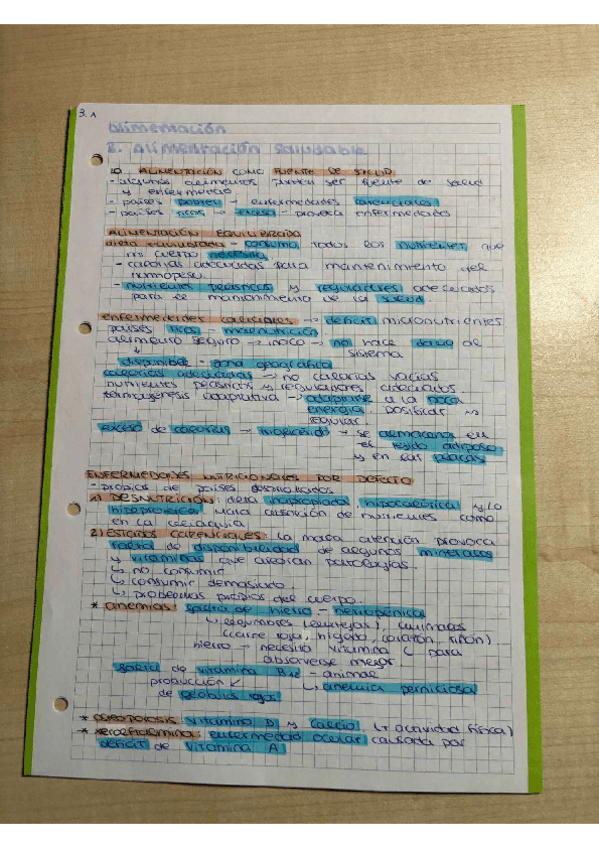 3.1
alimentación
2. Alimentación saludable
1) ALIMENTACIÓN COMO FUENTE DE SALUD
- algunos alimentos pueden ser fuente de salud
y enfermedad
- países pobres → enfermedades carenciales
- países ricos → exceso - provoca enfermedades
ALIMENTACIÓN EQUILIBRADA
dieta equilibrada - consuma todos los nutrientes que
mi cuerpo necesita
- calorías adecuadas para mantenimiento del
normopeso
- nutrientes plásticos y reguladores adecuados
para el mantenimiento de la salud
enfermedades carenciales → déficit micronutrientes
países ricos - malnutrición
alimento seguro → inocuo → no hace daño al
sistema
↓ disponible - zona geográfica
calorías adecuadas → no calorías vacías
nutrientes plásticos y reguladores adecuados
termogénesis adaptativa → adaptarse a la poca
energía. Dosificar
regular
exceso de calorías → triglicérido → se almacena en
el tejido adiposo
y en las placas
ENFERMEDADES NUTRICIONALES POR DEFECTO
- propias de países
1) DESNUTRICIÓN: dieta inapropiada, hipocalórica y/o
hipoproteica, mala absorción de nutrientes como
en la celiaquía
2) ESTADOS CARENCIALES: la mala atención provoca
falta de disponibilidad de algunos minerales
y vitaminas que acarrean patologías.
↳ no consumir
↳ consumir demasiado
↳ problemas propios del cuerpo.
* anemias: falta de hierro - ferropénica
↳ legumbres (lentejas), animales
(carne roja, hígado, corazón, riñón)
hierro → necesita vitamina C para
absorverse mejor
falta de vitamina B12 - animal
producción ↙ ↳ anemia perniciosa
de glóbulos rojos
* osteoporosis: vitamina D y calcio. (+ actividad física)
* xeroftalmina: enfermedad ocular causada por
déficit de vitamina A